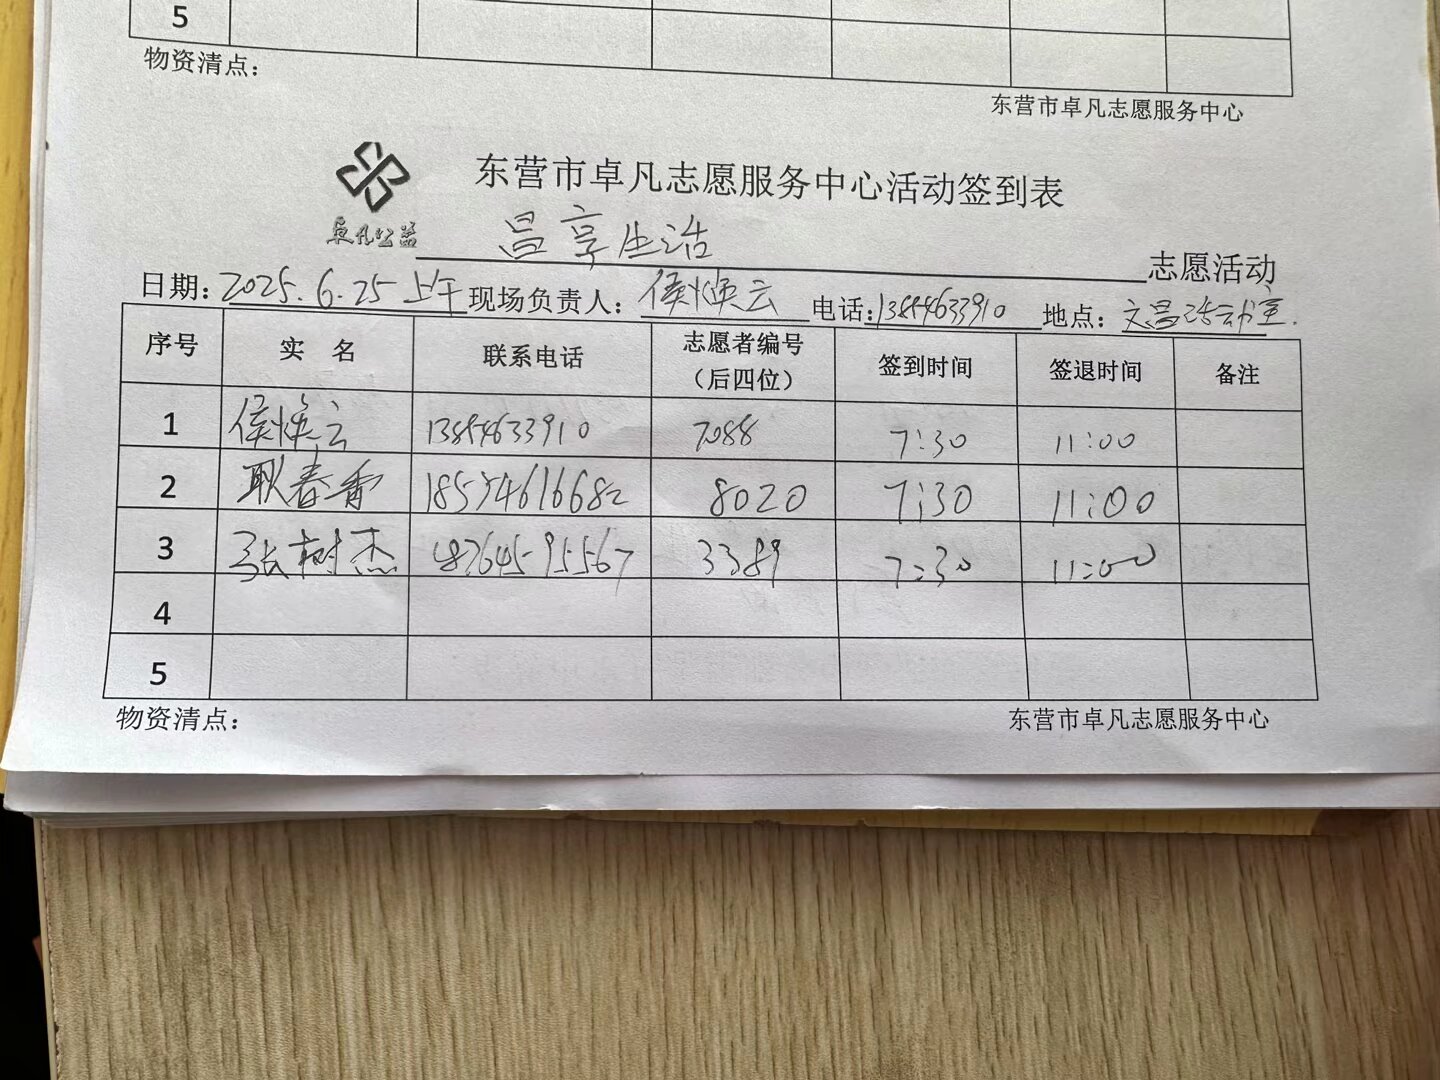 5
物资清点：
东营市卓凡志愿服务中心
东营市卓凡志愿服务中心活动签到表
卓凡公益
昌享生活 志愿活动
日期：2025.6.25上午 现场负责人：侯焕云 电话：13854633910 地点：文昌活动室.
序号 实 名 联系电话 志愿者编号（后四位） 签到时间 签退时间 备注
1 侯焕云 13854633910 7088 7:30 11:00
2 耿春香 18554616682 8020 7:30 11:00
3 张树杰 18764595567 3389 7:30 11:00
4
5
物资清点：
东营市卓凡志愿服务中心